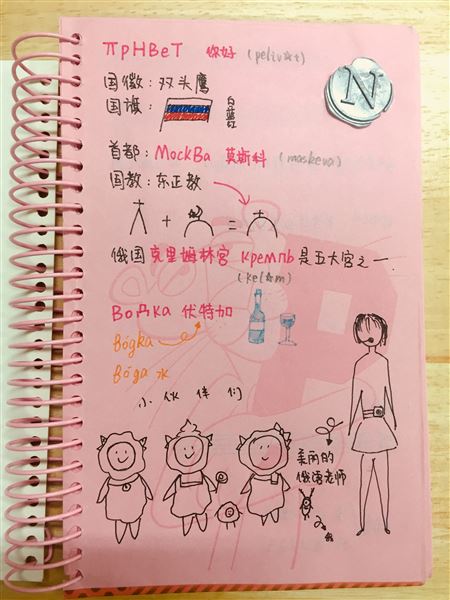 πpHBeT 你好 (peliv☆t)
N
国徽:双头鹰
国旗:白蓝红
首都:MockBa 莫斯科 (maskeva)
国教:东正教
人 + = 
俄国克里姆林宫 кремль是五大宫之一.
(kel☆m)
Bодка 伏特加
вógka
вóga 水
小伙伴们
美丽的
俄语老师
我